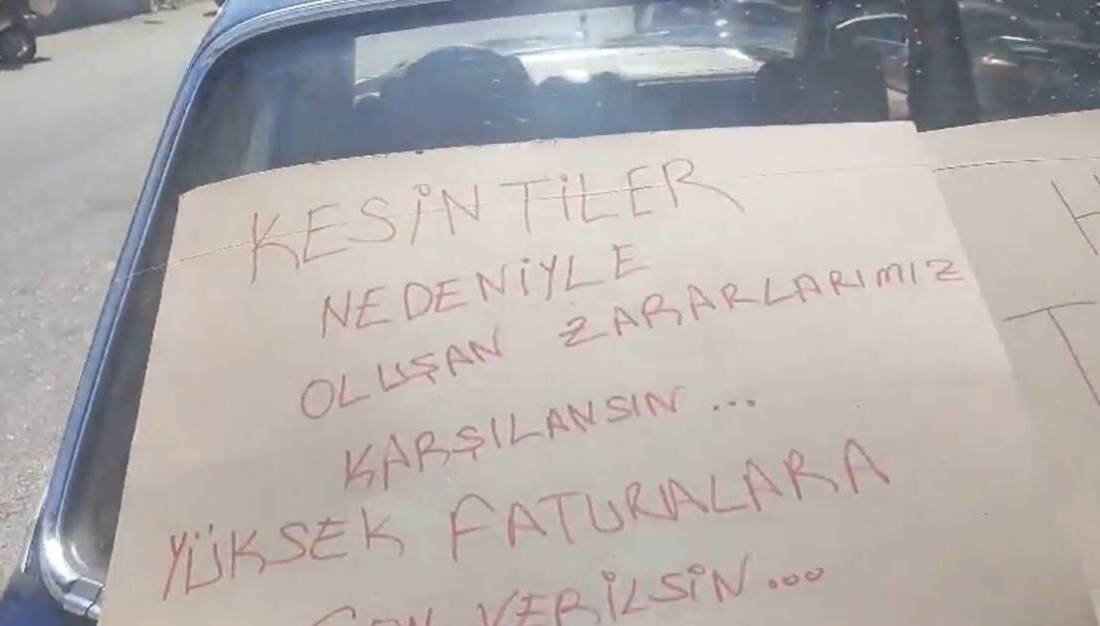 KESİNTİLER
NEDENİYLE
OLUŞAN ZARARLARIMIZ
KARŞILANSIN ...
YÜKSEK FATURALARA
SON VERİLSİN...